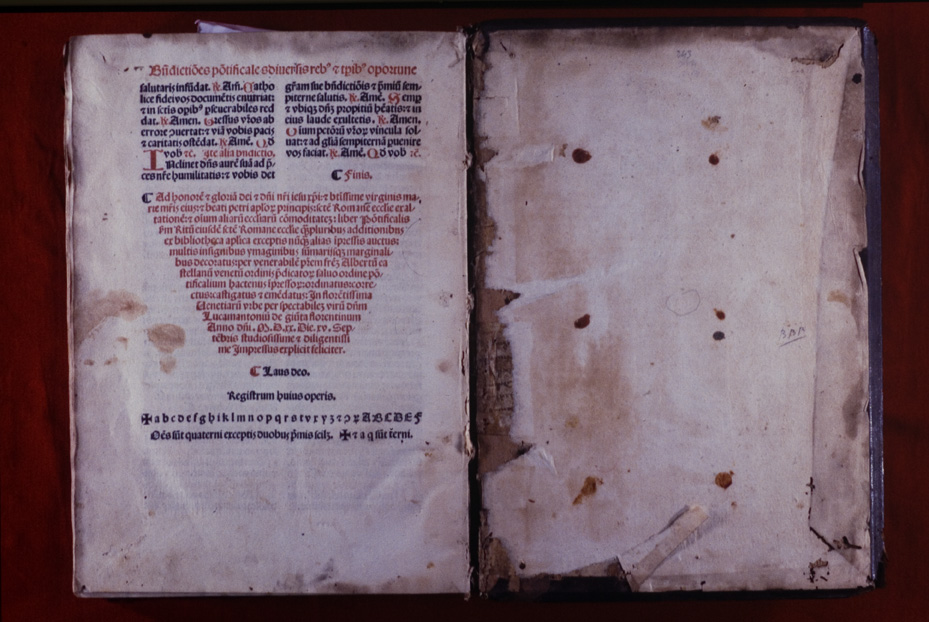 Bñdictiões põtificales diuersis reb⁹ ⁊ tpib⁹ oportune
salutaris infūdat. ℟. Am̃. Catho
lice fidei vos documẽtis enutriat:
⁊ in scris opib⁹ pseuerabiles red
dat. ℟. Amen. Gressus vr̃os ab
errore ꝯuertat: ⁊ viā vobis pacis
⁊ caritatis ostẽdat. ℟. Amẽ. Qđ
vob ⁊c. Ite alia bñdictio.
INclinet dñs aurẽ suā ad p̃
ces nr̃e humilitatis: ⁊ vobis det
gr̃am sue bñdictiõis ⁊ p̃miū sem-
piterne salutis. ℟. Amẽ. Semp
⁊ vbiqꝫ dñz propitiū hẽatis: ⁊ in
eius laude exultetis. ℟. Amen.
Oium petõrū vr̃oꝝ vincula sol-
uat: ⁊ ad gl̃iā sempiternā puenire
vos faciat. ℟. Amẽ. Qđ vob ⁊c.
¶ Finis.
¶ Ad honorẽ ⁊ gloriā dei ⁊ dñi nr̃i iesu xp̃i: ⁊ btissime virginis ma-
rie mr̃is eius: ⁊ beati petri apl̃oꝝ principis: scte Romane ecclie exal-
tationẽ: ⁊ oium aliarū eccliarū cõmoditatez: liber Põtificalis
ẜm Ritū eiusdẽ scte Romane ecclie q̃pluribus additionibus
ex bibliotheca aplica exceptis nūq̃ alias ipressis auctus:
multis insignibus ymaginibus sūmarijsqꝫ marginali-
bus decoratus: per venerabilẽ p̃rem fr̃ez Albertū ca
stellanū venetū ordinis p̃dicatoꝝ: saluo ordine põ-
tificalium hactenus ipressoꝝ: ordinatus: corre-
ctus: castigatus ⁊ emẽdatus: In florẽtissima
Uenetiarū vrbe per spectabilẽ virū dñm
Lucamantoniū de giũta florentinum
Anno dñi. M.D.xx. Die. xv. Sep-
tẽbris studiosissime ⁊ diligentissi
me Impressus explicit feliciter.
¶ Laus deo.
Registrum huius operis.
✠ a b c d e f g h i k l m n o p q r s t v x y z ⁊ ꝯ ꝝ A B C D E F
Oẽs sūt quaterni exceptis duobus p̃mis scilꝫ. ✠ ⁊ a q̃ sūt t̃erni.
263